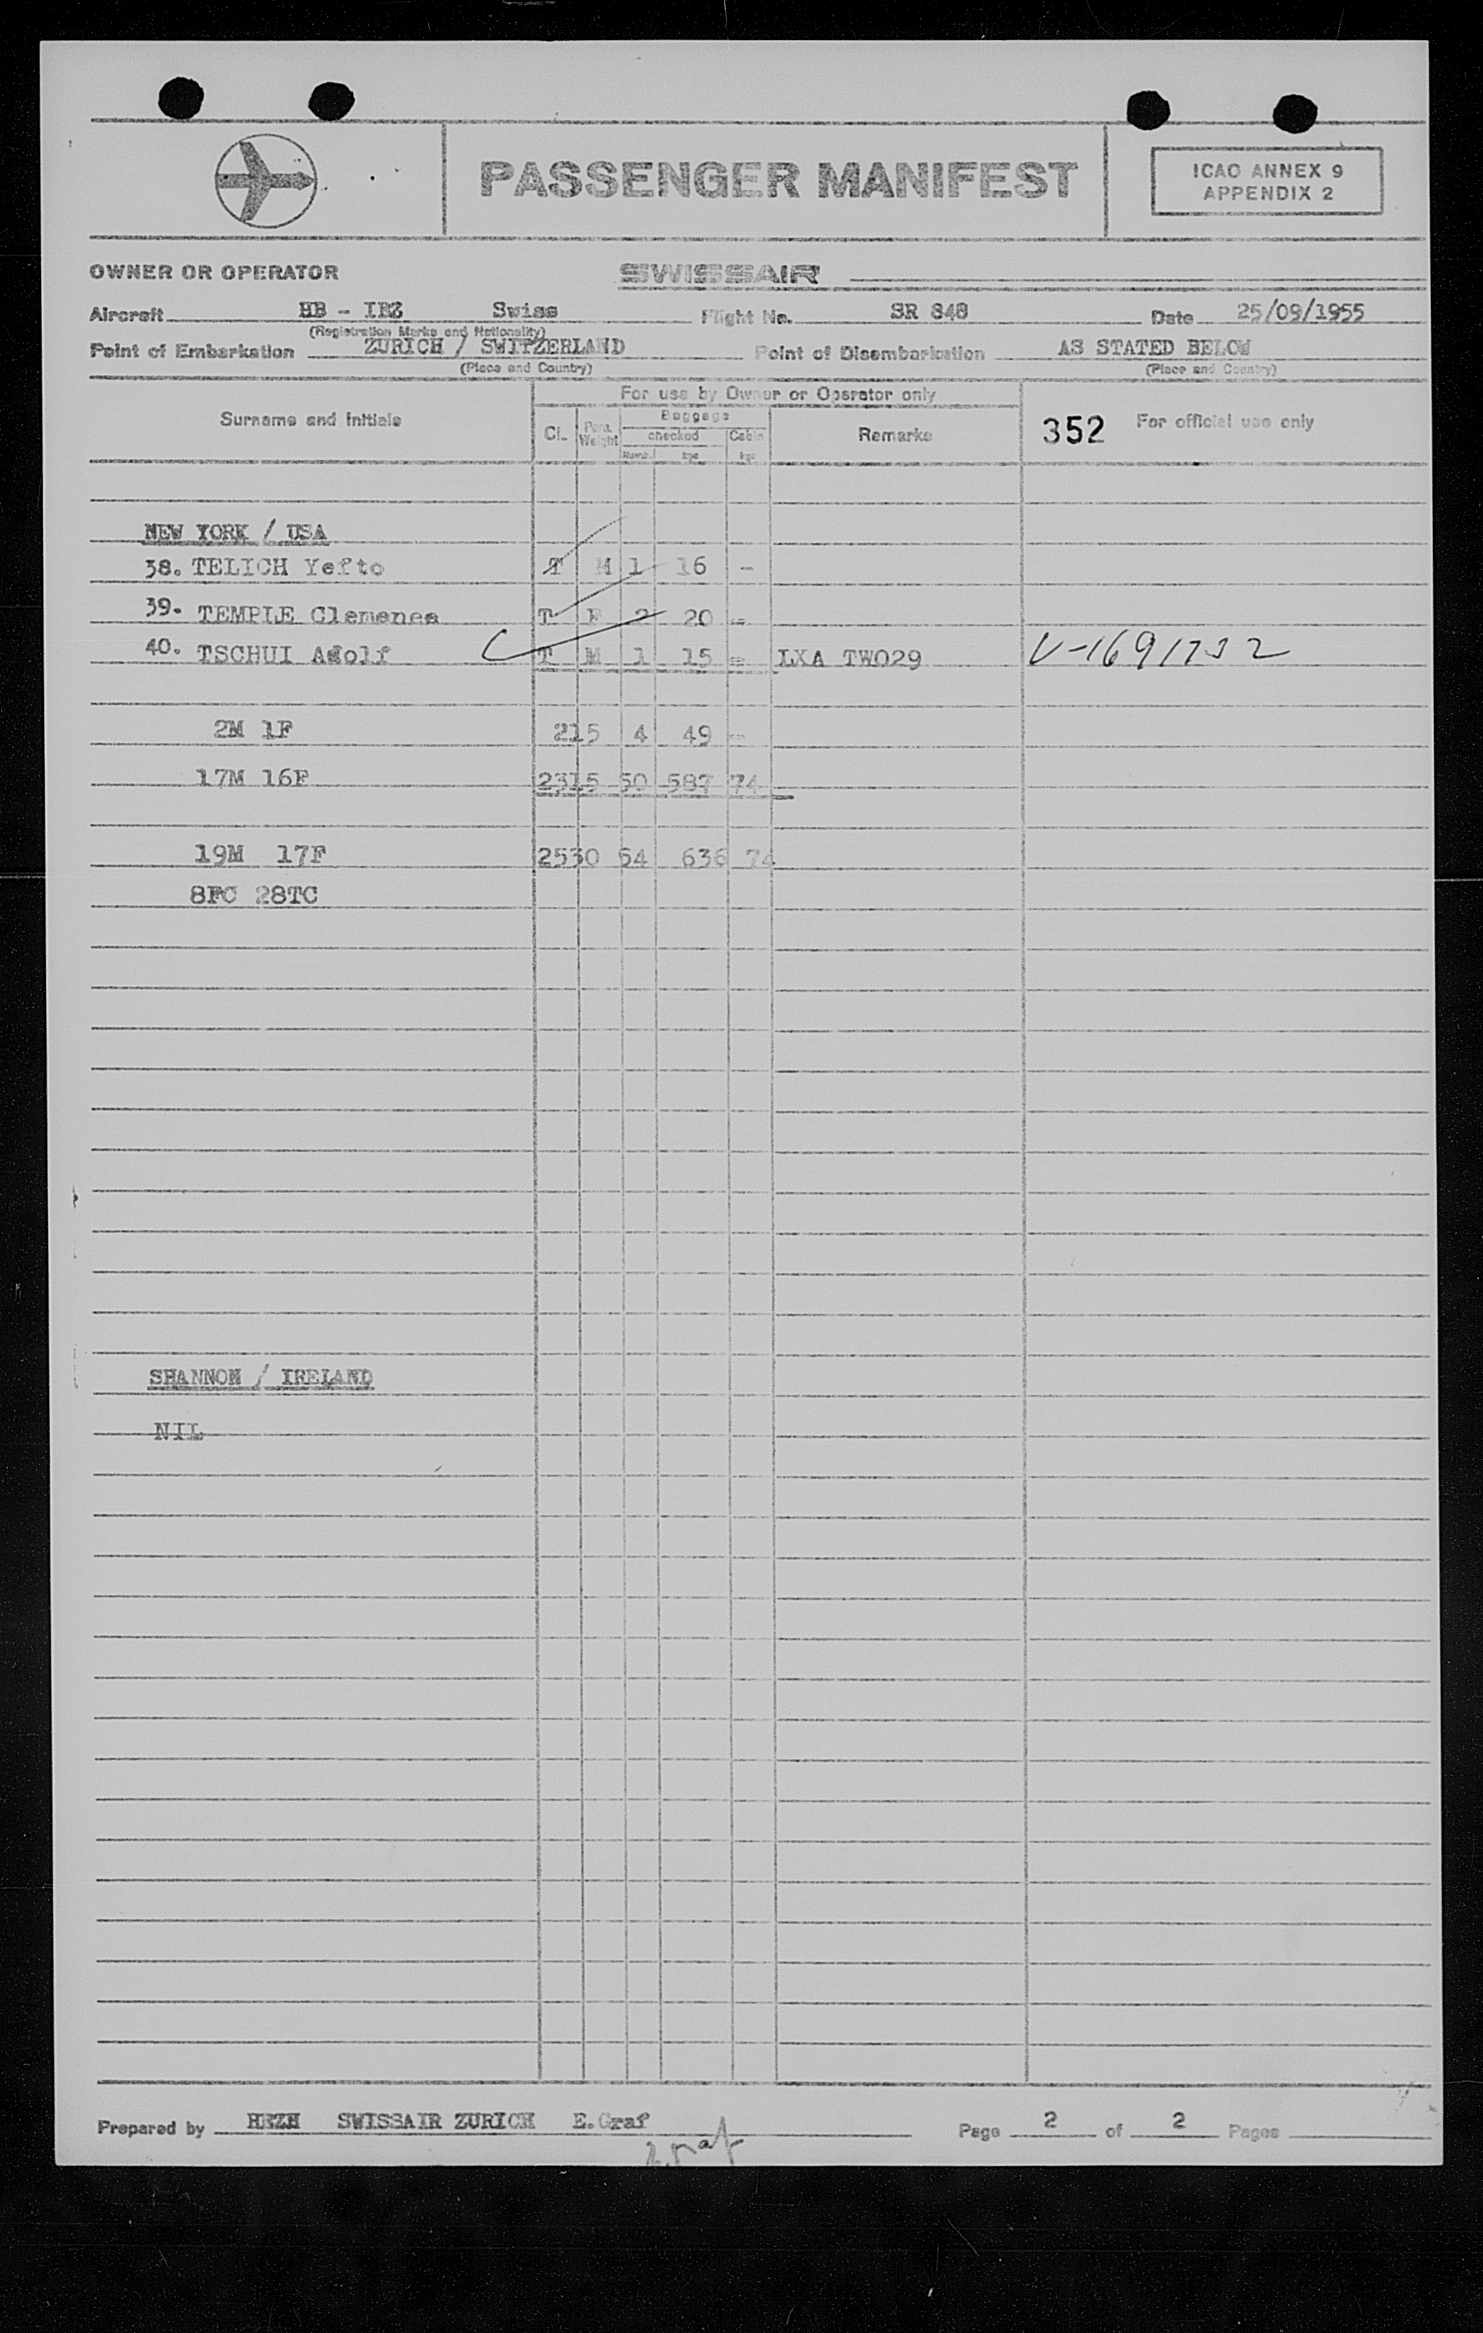 PASSENGER MANIFEST
ICAO ANNEX 9
APPENDIX 2
OWNER OR OPERATOR SWISSAIR
Aircraft HB - Swiss Flight No. SR 848 Date 25/09/1955
(Registration Marks and Nationality)
Point of Embarkation ZURICH / SWITZERLAND Point of Disembarkation AS STATED BELOW
(Place and Country) (Place and Country)
For use by Owner or Operator only
Surname and Initials Cl. Pers. Weight Baggage checked Numb. kgs Cabin kgs Remarks 352 For official use only
NEW YORK / USA
38. TELICH Yefto T M 1 16 -
39. TEMPLE Clemenea T F 2 20 -
40. TSCHUI Adolf T M 1 15 - LXA TWO29 V-1691732
2M 1F 215 4 49 -
17M 16F 2315 50 587 74
19M 17F 2530 54 636 74
8FC 28TC
SHANNON / IRELAND
NIL
Prepared by HRZH SWISSAIR ZURICH E.Graf Page 2 of 2 Pages